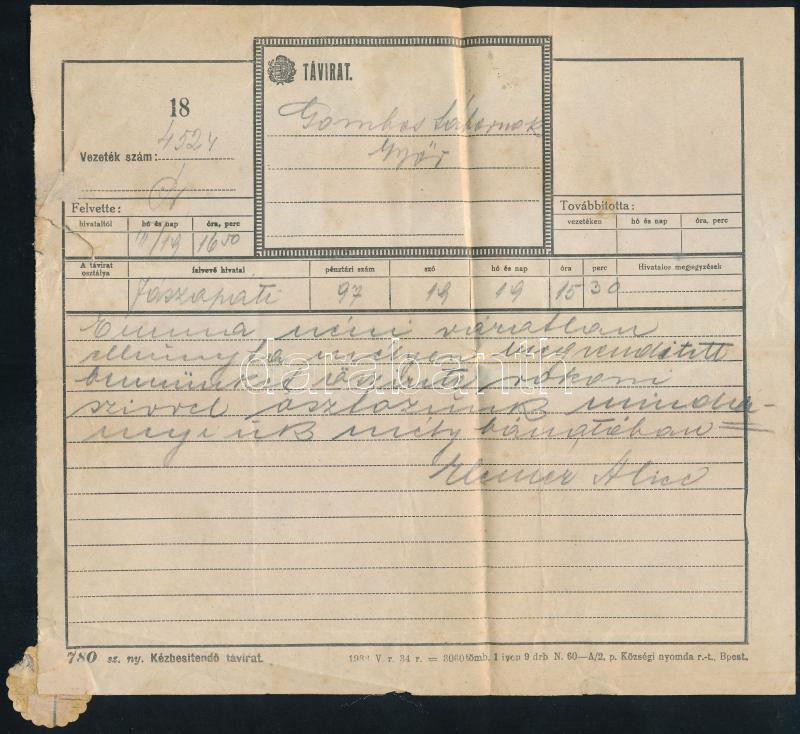 TÁVIRAT.
18
Vezeték szám: 4524
Gombos tábornok
Győr
Felvette:
Továbbította:
hivataltól
hó és nap
óra, perc
vezetéken
hó és nap
óra, perc
III/19
16 50
A távirat osztálya
felvevő hivatal
pénztári szám
szó
hó és nap
óra
perc
Hivatalos megjegyzések
Jászapáti
97
19
19
15
30
Emma néni váratlan
elhunyta mélyen megrenditett
bennünket őszinte rokoni
szivvel osztozunk minda-
nyiuk mély bánatában
Elemér Alice
databanth
780 sz. ny. Kézbesitendő távirat.
V. r. 34 r. = 3060 tömb. 1 iven 9 drb N. 60—A/2, p. Községi nyomda r.-t., Bpest.